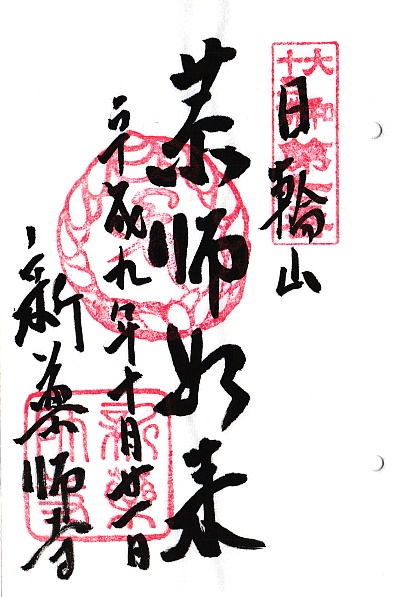 日輪山
薬師如来
平成九年十月廿一日
新薬師寺